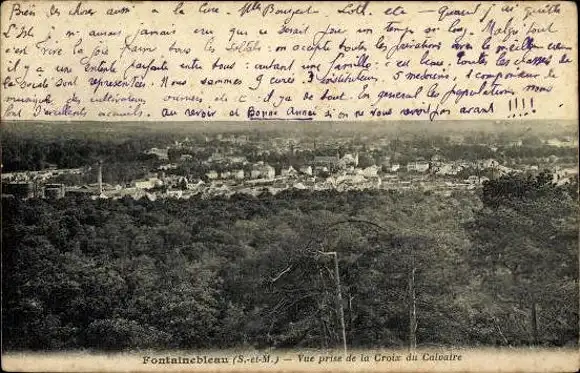 Bien des choses aussi à la Cure Mlle Bouzerle Loll. etc – quand j'ai quitté
L'Isle je n'aurais jamais cru que ce serait pour un temps si long. Malgré tout
c'est vrai la joie parmi tous les soldats: on accepte toutes les privations avec le meilleur cœur
il y a une entente parfaite entre tous: autant une famille: c'est beau. Toutes les classes de
la société sont représentées. Nous sommes 9 curés 3 instituteurs 5 médecins, 1 compondeur de
musique des cultivateurs ouvriers etc: il y a de tout. En général les populations nous
font d'excellents accueils. Au revoir et Bonne Année si on ne vous revoir pas avant !!!!
Fontainebleau (S.-et-M.) – Vue prise de la Croix du Calvaire